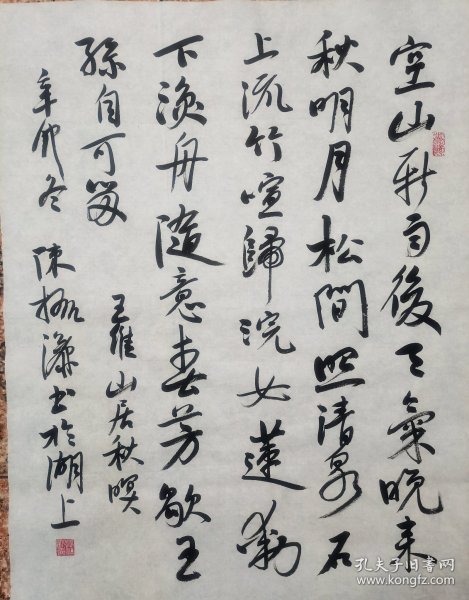 空山新雨後天氣晚來
秋明月松間照清泉石
上流竹喧歸浣女蓮動
下漁舟隨意春芳歇王
孫自可留
王維山居秋暝
辛卯冬 陳振濂書於湖上
孔夫子旧书网
www.kongfz.com